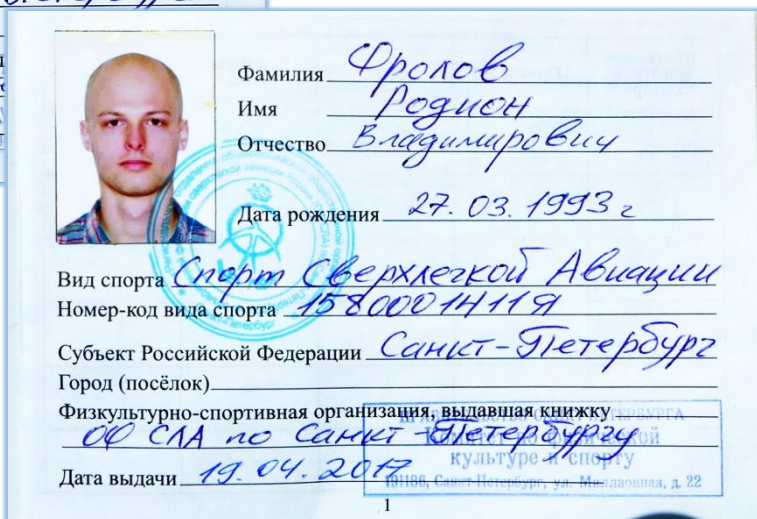 Фамилия Фролов
Имя Родион
Отчество Владимирович
Дата рождения 27.03.1993 г
Вид спорта Спорт Сверхлегкой Авиации
Номер-код вида спорта 1580001411Я
Субъект Российской Федерации Санкт-Петербург
Город (посёлок)
Физкультурно-спортивная организация, выдавшая книжку
ОФ СЛА по Санкт-Петербургу
Дата выдачи 19.04.2017
культуре и спорту
191186, Санкт-Петербург, ул. Миллионная, д. 22
1